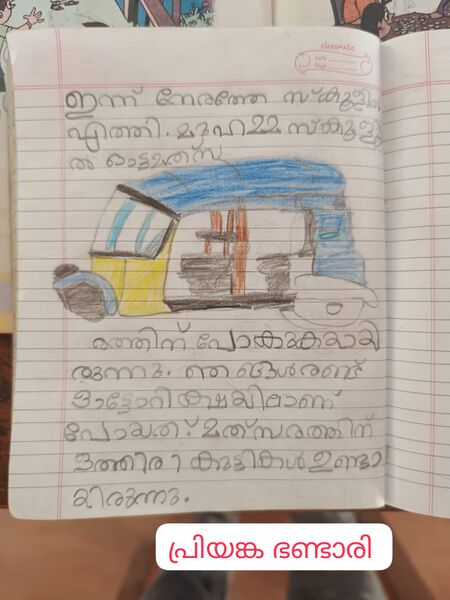 classmate
Date
Page
ഇന്ന് നേരത്തേ സ്കൂളിൽ
എത്തി. മുഹമ്മ സ്കൂളി
ൽ ഓട്ടമത്സ
രത്തിന് പോകുകയായി
രുന്നു. ഞങ്ങൾ രണ്ട്
ഓട്ടോറിക്ഷയിലാണ്
പോയത്. മത്സരത്തിന്
ഒത്തിരി കുട്ടികൾ ഉണ്ടാ
യിരുന്നു.
പ്രിയങ്ക ഭണ്ടാരി